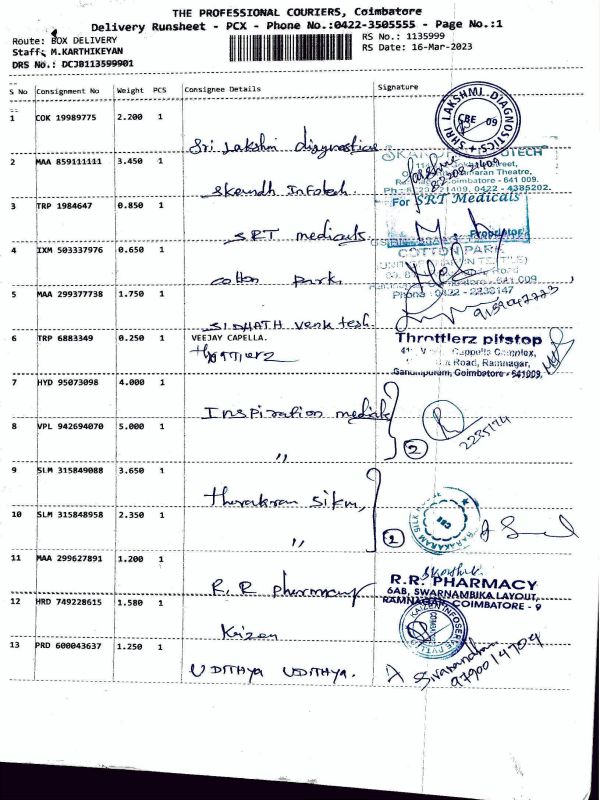 THE PROFESSIONAL COURIERS, Coimbatore
Delivery Runsheet - PCX - Phone No.:0422-3505555 - Page No.:1
Route: BOX DELIVERY
RS No.: 1135999
Staff: M.KARTHIKEYAN
RS Date: 16-Mar-2023
DRS No.: DCJB113599901
S No Consignment No Weight PCS Consignee Details Signature
1 COK 19989775 2.200 1
SHRI LAKSHMI DIAGNOSTICS
CBE 09
Sri Lakshmi diagnostics
2 MAA 859111111 3.450 1
Coimbatore - 641 009.
0422 - 4385202.
Skandh Infotech.
For SRT Medicals
3 TRP 1984647 0.850 1
SRT medicals.
Proprietor
4 IXM 503337976 0.650 1
COTTON PARK
cotton park.
5 MAA 299377738 1.750 1
Phone : 0422 - 2233147
SIDHATH venktesh.
6 TRP 6883349 0.250 1 VEEJAY CAPELLA.
Throttlerz pitstop
Cappella Complex,
Road, Ramnagar,
Gandhipuram, Coimbatore - 641009.
7 HYD 95073098 4.000 1
Inspiration medical
8 VPL 942694070 5.000 1
2
2235174
"
9 SLM 315849088 3.650 1
10 SLM 315848958 2.350 1
CBE
"
2
11 MAA 299627891 1.200 1
R.R. PHARMACY
6AB, SWARNAMBIKA LAYOUT,
RAMNAGAR, COIMBATORE - 9
R.R pharmacy
12 HRD 749228615 1.580 1
Kaizen
13 PRD 600043637 1.250 1
UDITHYA UDITHYA.
Sivanandham